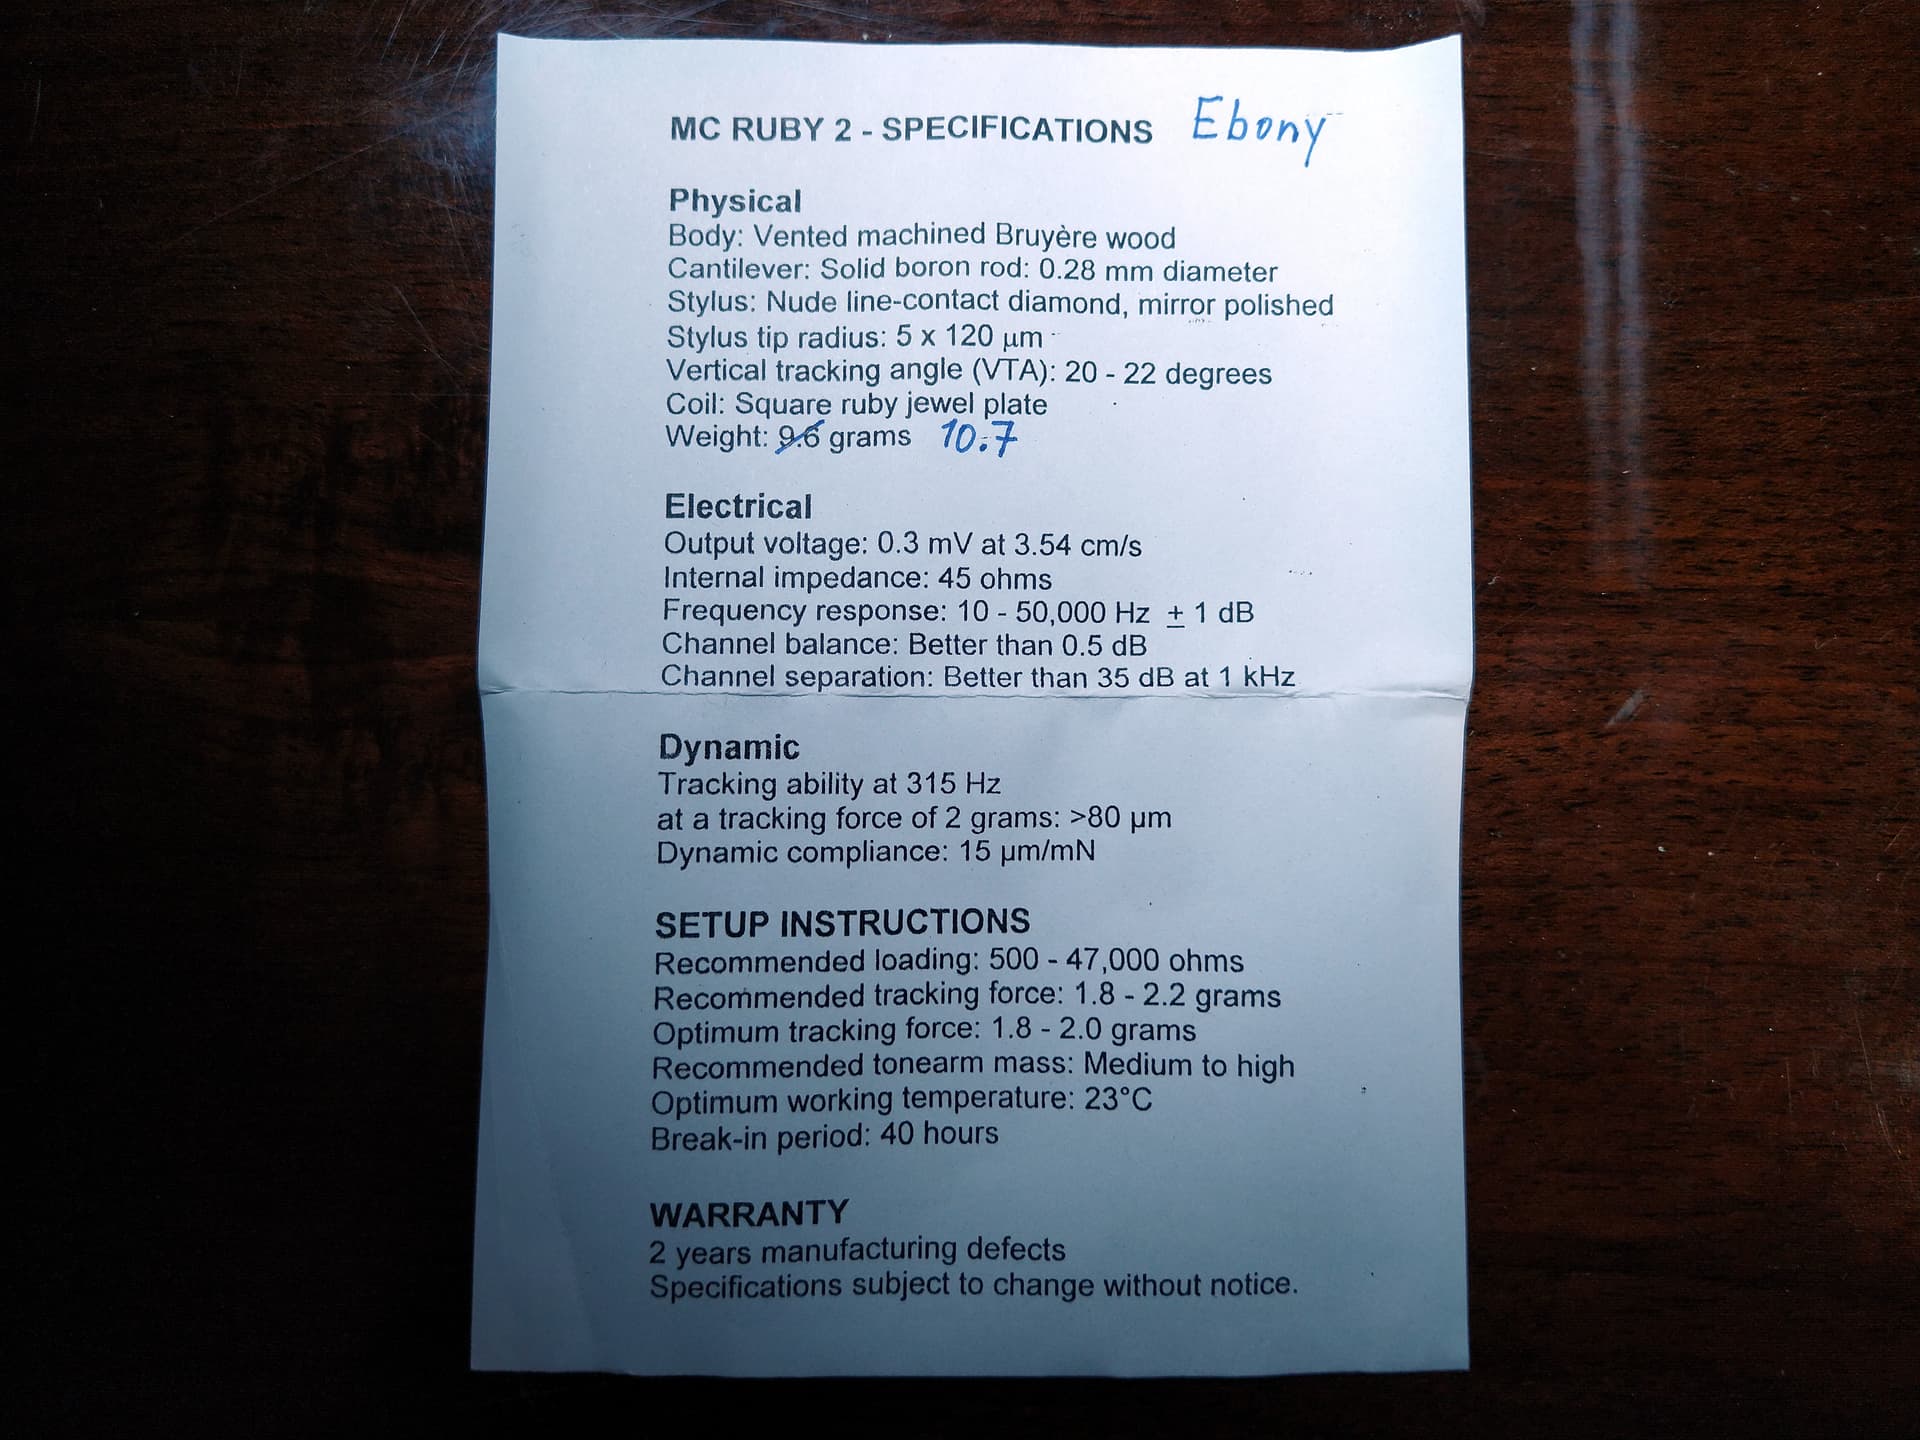 MC RUBY 2 - SPECIFICATIONS Ebony
Physical
Body: Vented machined Bruyère wood
Cantilever: Solid boron rod: 0.28 mm diameter
Stylus: Nude line-contact diamond, mirror polished
Stylus tip radius: 5 x 120 µm
Vertical tracking angle (VTA): 20 - 22 degrees
Coil: Square ruby jewel plate
Weight: 9.6 grams 10.7
Electrical
Output voltage: 0.3 mV at 3.54 cm/s
Internal impedance: 45 ohms
Frequency response: 10 - 50,000 Hz ± 1 dB
Channel balance: Better than 0.5 dB
Channel separation: Better than 35 dB at 1 kHz
Dynamic
Tracking ability at 315 Hz
at a tracking force of 2 grams: >80 µm
Dynamic compliance: 15 µm/mN
SETUP INSTRUCTIONS
Recommended loading: 500 - 47,000 ohms
Recommended tracking force: 1.8 - 2.2 grams
Optimum tracking force: 1.8 - 2.0 grams
Recommended tonearm mass: Medium to high
Optimum working temperature: 23°C
Break-in period: 40 hours
WARRANTY
2 years manufacturing defects
Specifications subject to change without notice.